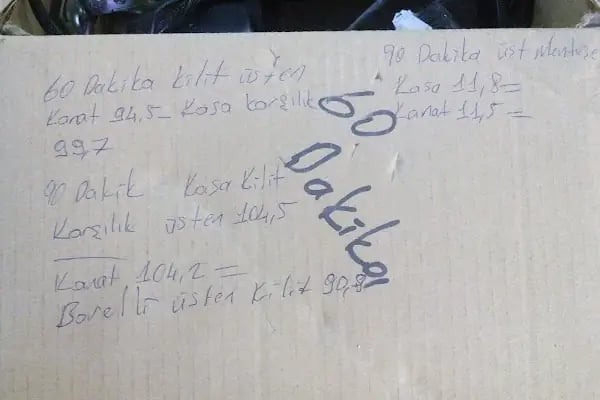 60 Dakika kilit üsten
Kanat 94,5 - Kasa karşılık
99,7
90 Dakik Kasa Kilit
Karşılık üsten 104,5
Kanat 104,2 =
Barelli üsten Kilit 90,8
60
Dakika
90 Dakika üst menteşe
Kasa 11,8 =
Kanat 11,5 =